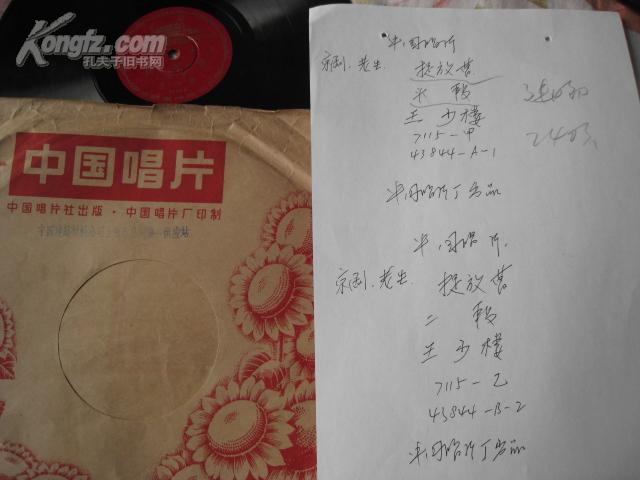 Kongfz.com
孔夫子旧书网
中国唱片
中国唱片社出版·中国唱片厂印制
中国唱片
京剧.老生. 捉放曹
头段
王少楼
7115-甲
43844-A-1
中国唱片厂出品
中国唱片.
京剧.老生. 捉放曹
二段
王少楼
7115-乙
43844-B-2
中国唱片厂出品